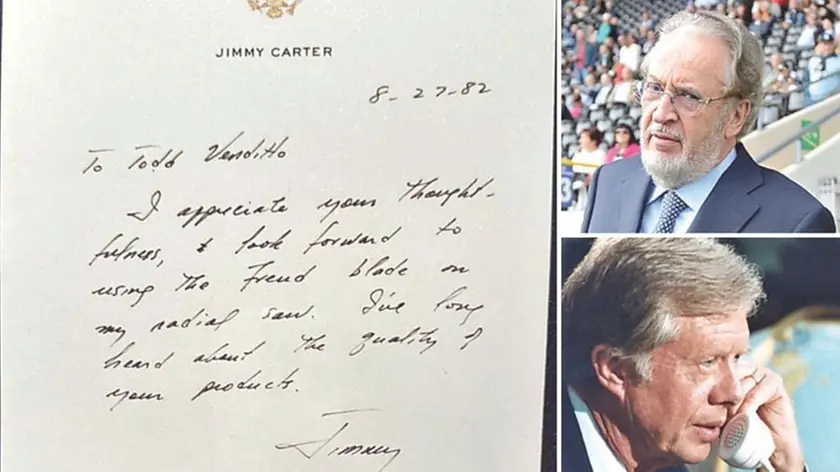 JIMMY CARTER
8-27-82
To Todd Venditto
I appreciate your thought-
fulness, & look forward to
using the Freud blade on
my radial saw. I've long
heard about the quality of
your products.
Jimmy